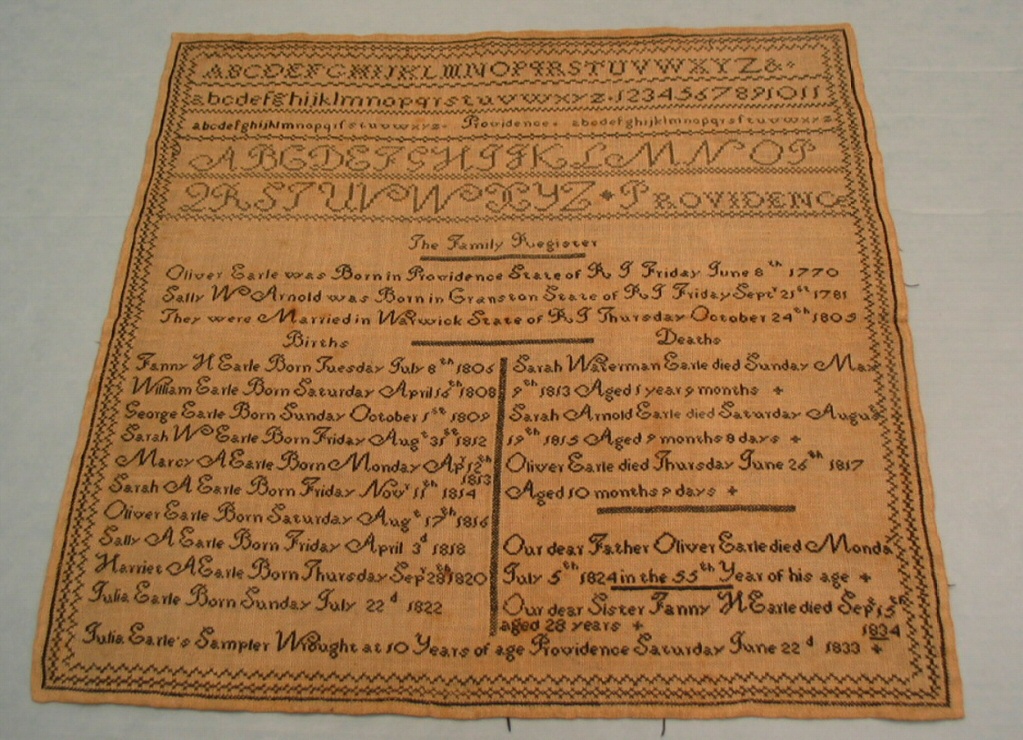 ABCDEFGHIJKLMNOPQRSTUVWXYZ&
abcdefghijklmnopqrstuvwxyz.1234567891011
abcdefghijklmnopqrsftuvwxyz. Providence. abcdefghijklmnopqrsftuvwxyz
ABCDEFGHIJKLMNOP
QRSTUVWXYZ PROVIDENCE
The Family Register
Oliver Earle was Born in Providence State of R I Friday June 8th 1770
Sally W Arnold was Born in Cranston State of R I Friday Septr 21st 1781
They were Married in Warwick State of R I Thursday October 24th 1805
Births
Fanny H Earle Born Tuesday July 8th 1806
William Earle Born Saturday April 16th 1808
George Earle Born Sunday October 1st 1809
Sarah W Earle Born Friday Augt 31st 1812
Marcy A Earle Born Monday Apr 12th
1813
Sarah A Earle Born Friday Novr 11th 1814
Oliver Earle Born Saturday Augt 17th 1816
Sally A Earle Born Friday April 3d 1818
Harriet A Earle Born Thursday Sepr 28th 1820
Julia Earle Born Sunday July 22d 1822
Deaths
Sarah Waterman Earle died Sunday May
9th 1813 Aged 1 year 9 months +
Sarah Arnold Earle died Saturday August
19th 1815 Aged 9 months 8 days +
Oliver Earle died Thursday June 26th 1817
Aged 10 months 9 days +
Our dear Father Oliver Earle died Monda
July 5th 1824 in the 55th Year of his age +
Our dear Sister Fanny H Earle died Sept 15th
1834
aged 28 years +
Julia Earle's Sampler Wrought at 10 Years of age Providence Saturday June 22d 1833 +